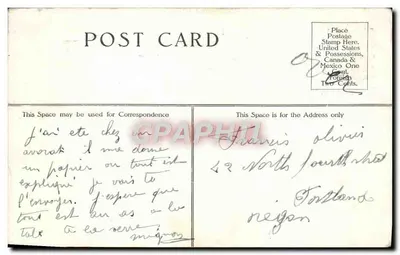 POST CARD
Place
Postage
Stamp Here.
United States
& Possessions,
Canada &
Mexico One
Cent.
Foreign
Two Cents.
This Space may be used for Correspondence
This Space is for the Address only
j'ai ete chez un
avorat il me donne
un papier ou tout est
expliqué je vais te
l'envoyer. j'espere que
tout est
te la
mignon
Francis olivier
42 North fourth street
Portland
oregon
CPARAMA